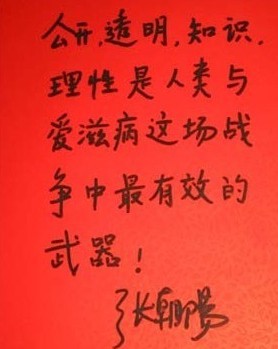 公开,透明,知识,
理性是人类与
爱滋病这场战
争中最有效的
武器!
张朝阳